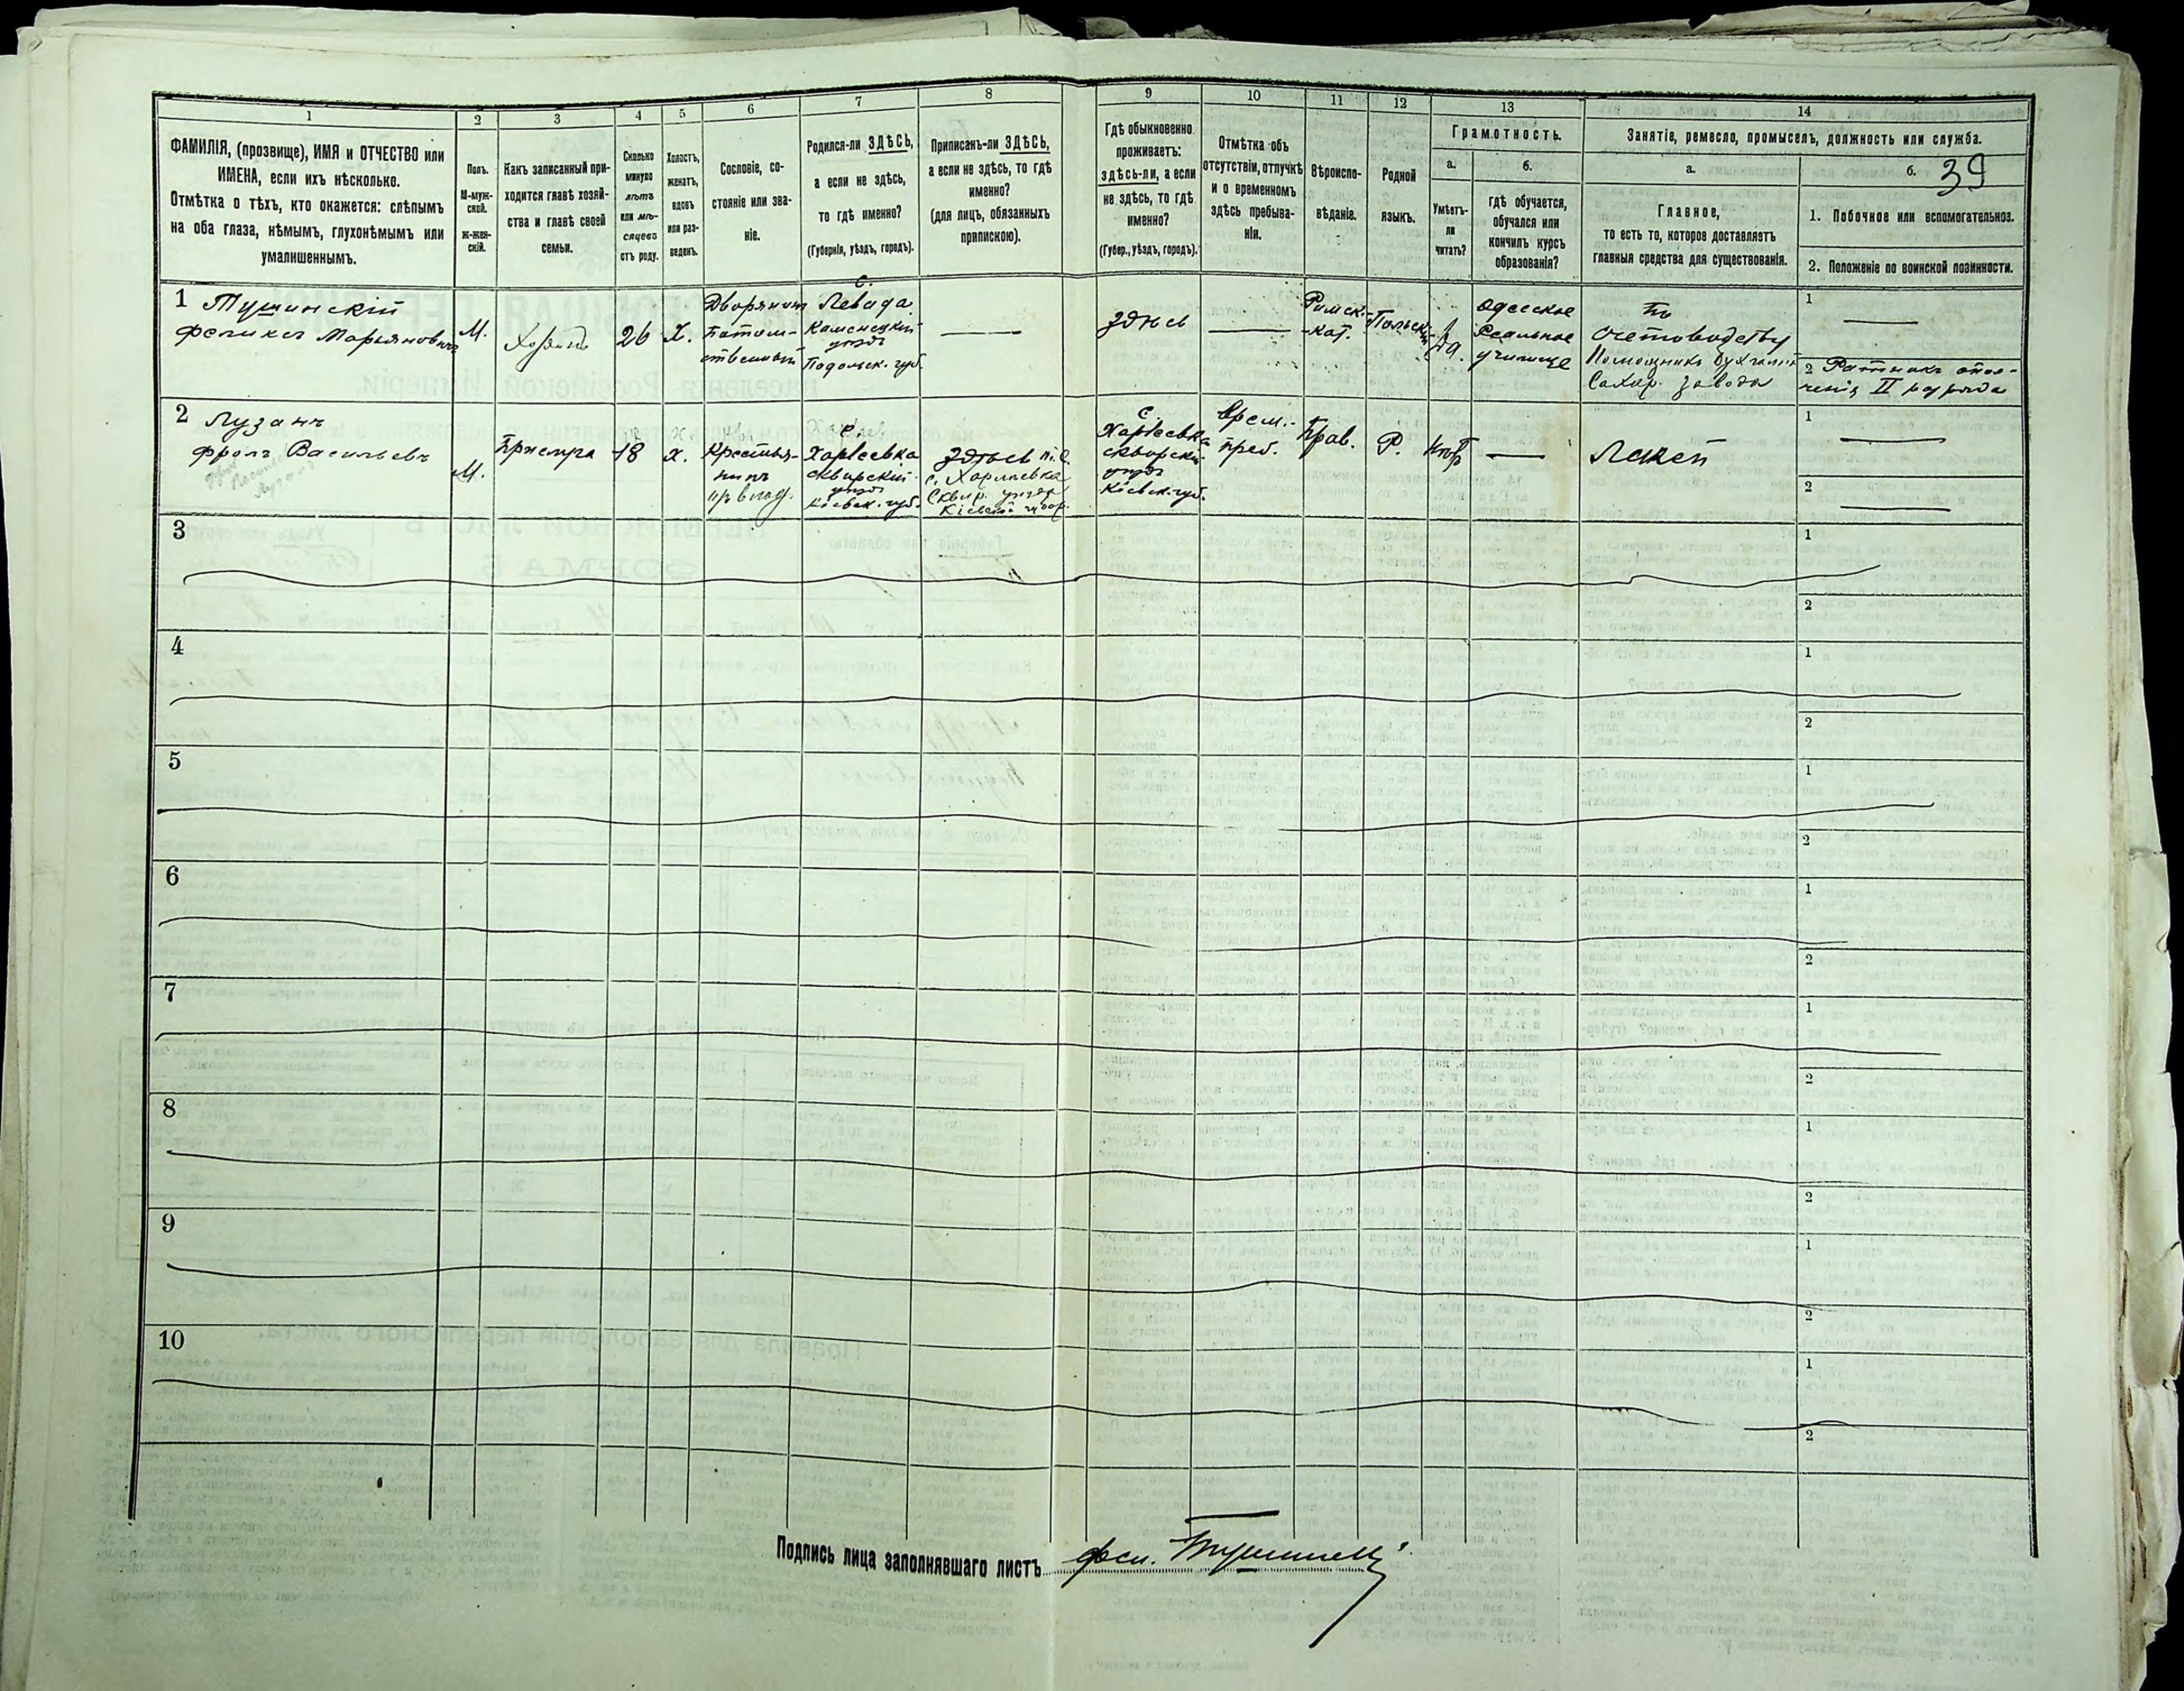 1
2
3
4
5
6
7
8
9
10
11
12
13
14
ФАМИЛІЯ, (прозвище), ИМЯ и ОТЧЕСТВО или
ИМЕНА, если ихъ нѣсколько.
Отмѣтка о тѣхъ, кто окажется: слѣпымъ
на оба глаза, нѣмымъ, глухонѣмымъ или
умалишеннымъ.
Полъ.
М-муж-
ской.
Ж-жен-
скій.
Какъ записанный при-
ходится главѣ хозяй-
ства и главѣ своей
семьи.
Сколько
минуло
лѣтъ
или мѣ-
сяцевъ
отъ роду.
Холостъ,
женатъ,
вдовъ
или раз-
веденъ.
Сословіе, со-
стояніе или зва-
ніе.
Родился-ли ЗДѢСЬ,
а если не здѣсь,
то гдѣ именно?
(Губернія, уѣздъ, городъ).
Приписанъ-ли ЗДѢСЬ,
а если не здѣсь, то гдѣ
именно?
(для лицъ, обязанныхъ
припискою).
Гдѣ обыкновенно
проживаетъ:
здѣсь-ли, а если
не здѣсь, то гдѣ
именно?
(Губер., уѣздъ, городъ).
Отмѣтка объ
отсутствіи, отлучкѣ
и о временномъ
здѣсь пребыва-
ніи.
Вѣроиспо-
вѣданіе.
Родной
языкъ.
Грамотность.
а.
Умѣетъ-
ли
читать?
б.
гдѣ обучается,
обучался или
кончилъ курсъ
образованія?
Занятіе, ремесло, промыселъ, должность или служба.
а.
Главное,
то есть то, которое доставляетъ
главныя средства для существованія.
б.
39
1. Побочное или вспомогательное.
2. Положеніе по воинской повинности.
1 Тушинскій
Феликсъ Марьяновичъ
М.
Хозяинъ
26
Х.
Дворянинъ
Потом-
ственный
С.
Левада
Каменецкій
уѣздъ
Подольск. губ.
Здѣсь
Римск.
-Кат.
Польск.
Да.
Одесское
Реальное
училище
По
счетоводству
Помощникъ бухгалт.
Сахар. завода
1
2 Ратникъ опол-
ченія II разряда
2 Лузанъ
Фролъ Васильевъ
М.
Прислуга
18
Х.
Крестья-
нинъ
С.
Харлѣевка
сквирскій
уѣздъ
Кіевск. губ.
Здѣсь
Сквир. уѣзда
С.
Харлѣевка
сквирскій
уѣздъ
Кіевск. губ.
Врем.-
преб.
Прав.
Р.
Лакей
1
2
3
1
2
4
1
2
5
1
2
6
1
2
7
1
2
8
1
2
9
1
2
10
1
2
Подпись лица заполнявшаго листъ Фел. Тушинскій